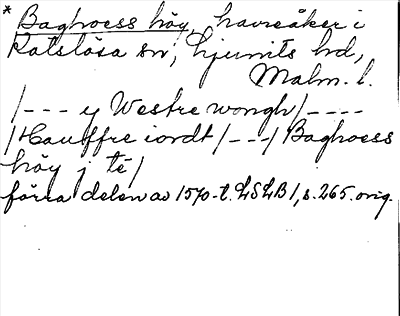 * Baghoess höy, havreåker i
Katslösa sn, Ljunits hd,
Malm. l.
/--- y Westre wongh/----
/Hauffre iordt/---/Baghoess
höy j té/
förra delen av 1570-t. LSLB 1, s. 265. orig.